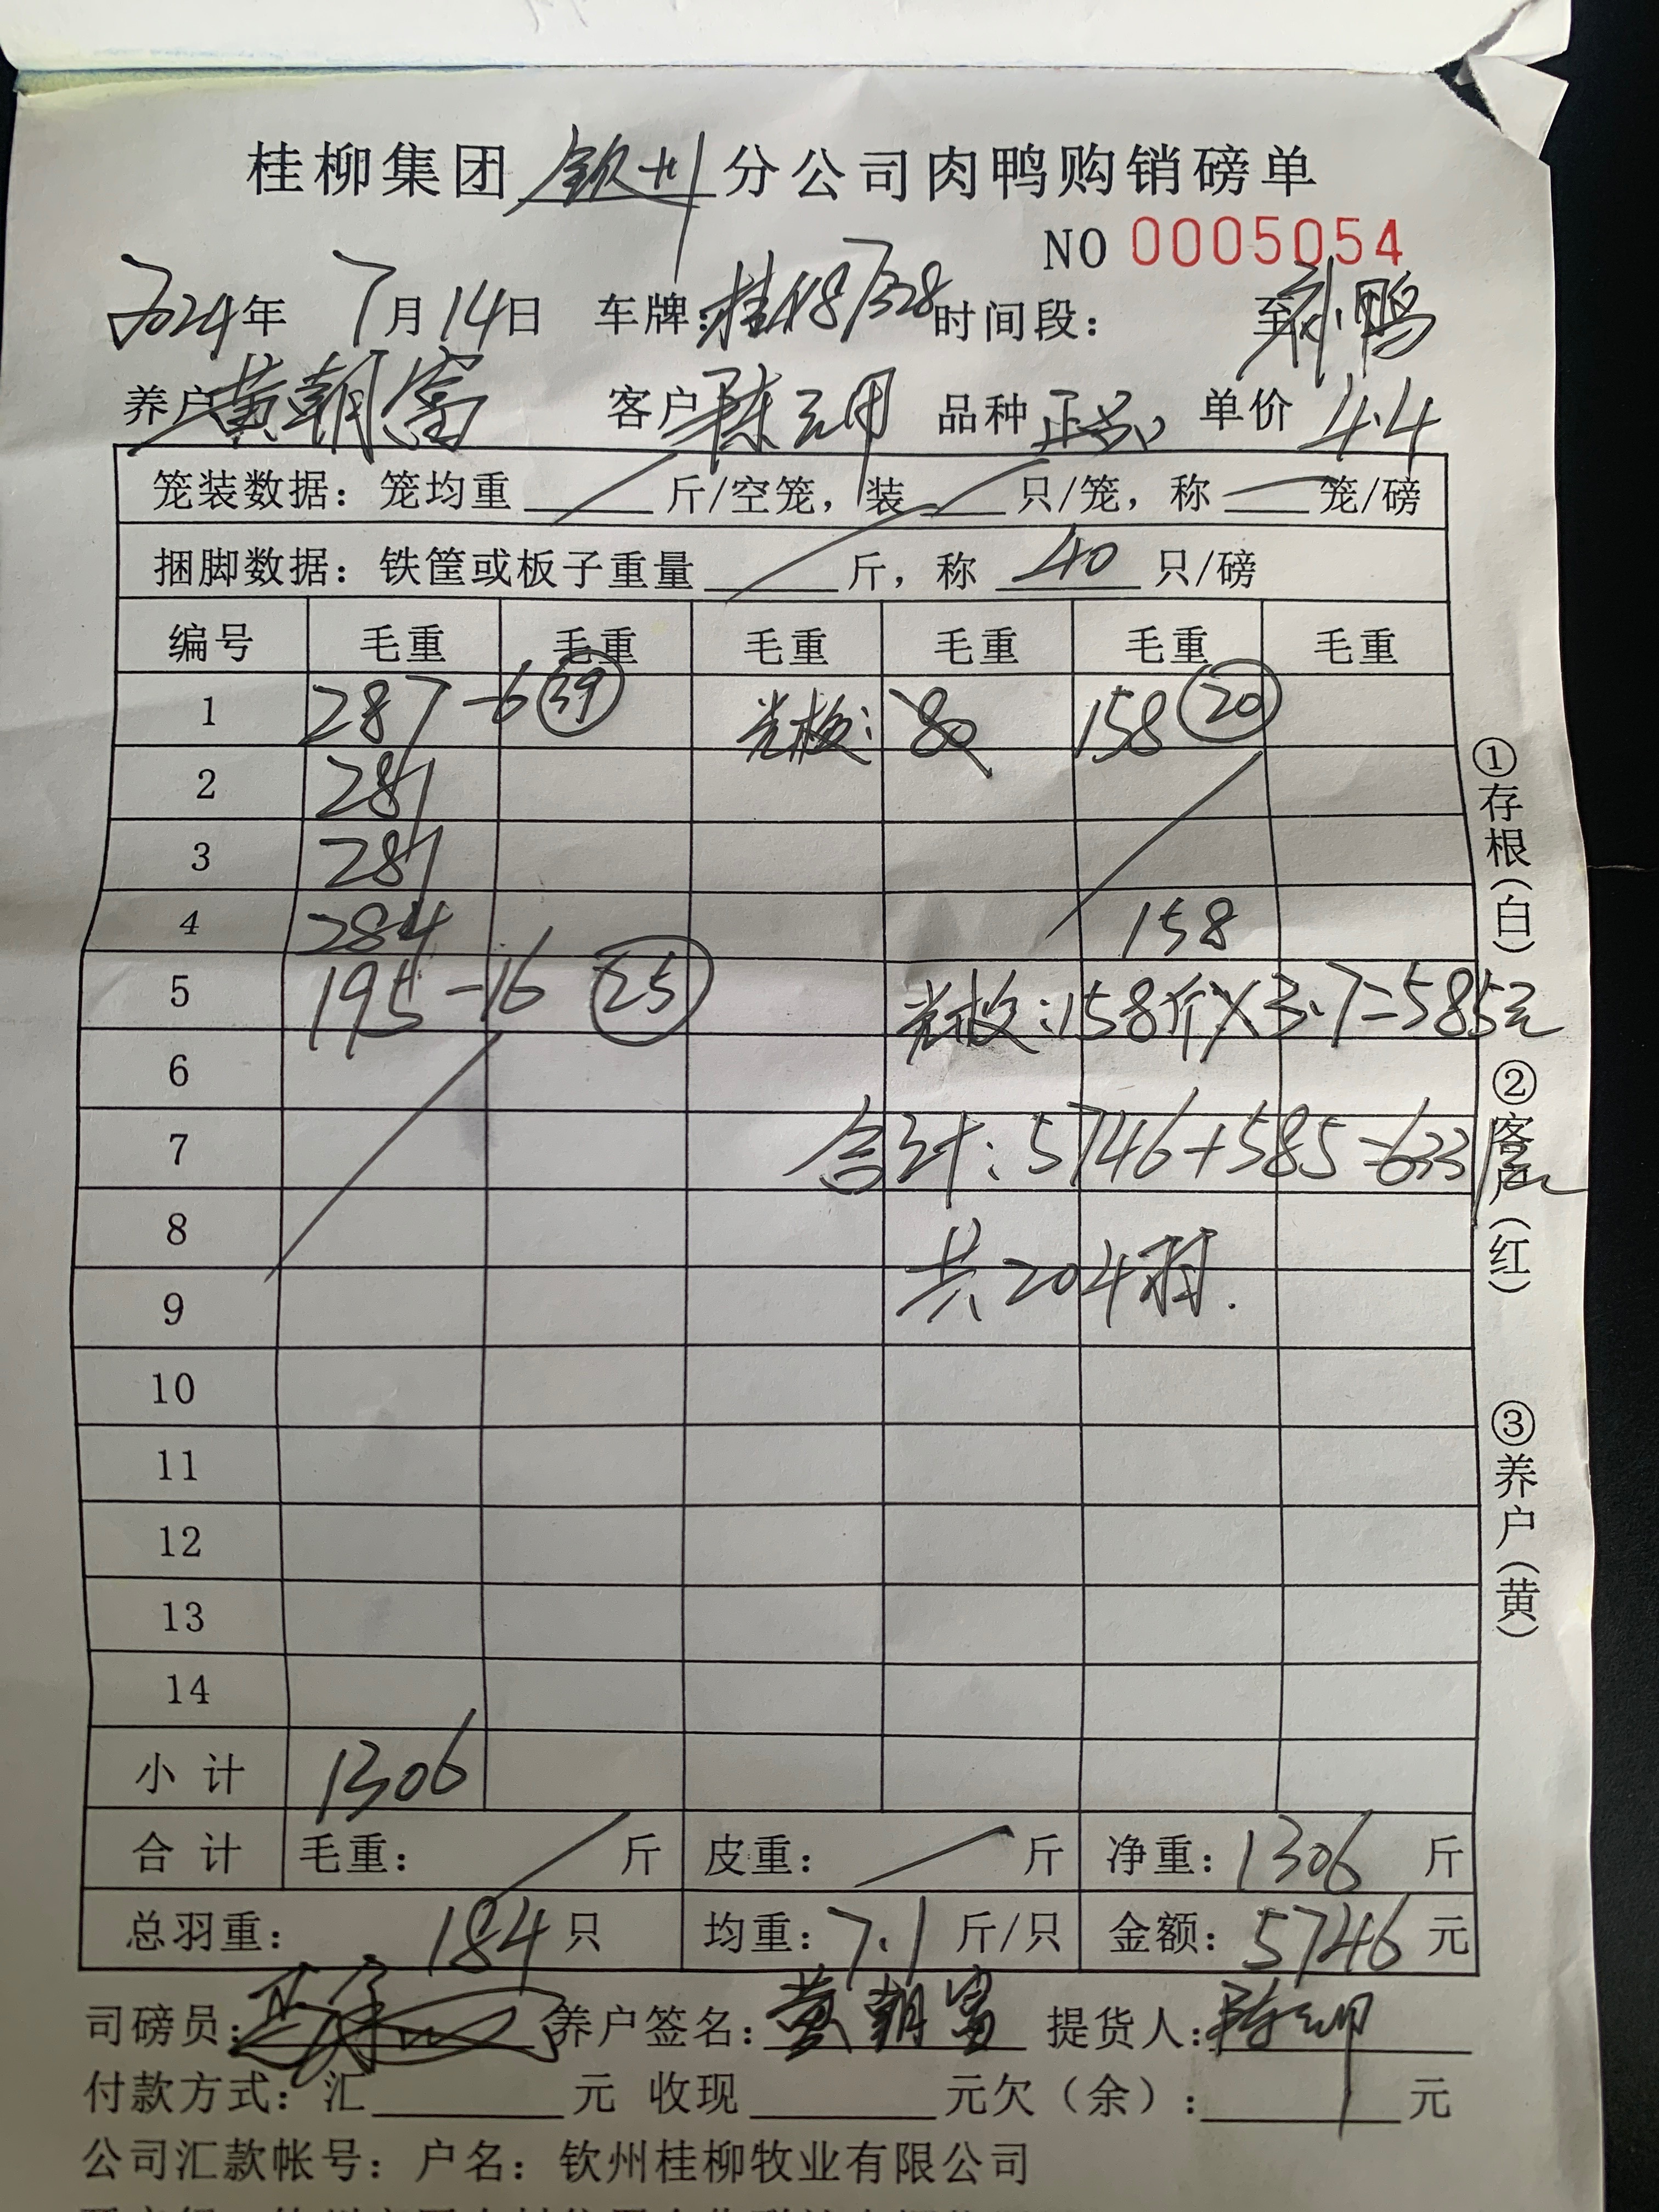 桂柳集团 钦州 分公司肉鸭购销磅单
NO 0005054
2024年 7月14日 车牌: 时间段: 至 鸭
养户 黄朝富 客户 陈 品种 正 单价 4.4
笼装数据: 笼均重 斤/空笼, 装 只/笼, 称 笼/磅
捆脚数据: 铁筐或板子重量 斤, 称 40 只/磅
编号 毛重 毛重 毛重 毛重 毛重 毛重
1 287 -6 39 光板: 80 158 20
2 287
3 287
4 284 158
5 195 -16 25 光板:158斤×3.7=585元
6
7 合计: 5746+585=6331元
8
9 共204只.
10
11
12
13
14
小计 1306
合计 毛重: 斤 皮重: 斤 净重: 1306 斤
总羽重: 184 只 均重: 7.1 斤/只 金额: 5746 元
司磅员: 养户签名: 黄朝富 提货人: 陈
付款方式: 汇 元 收现 元欠(余): 元
公司汇款帐号: 户名: 钦州桂柳牧业有限公司
①存根(白)
②客户(红)
③养户(黄)